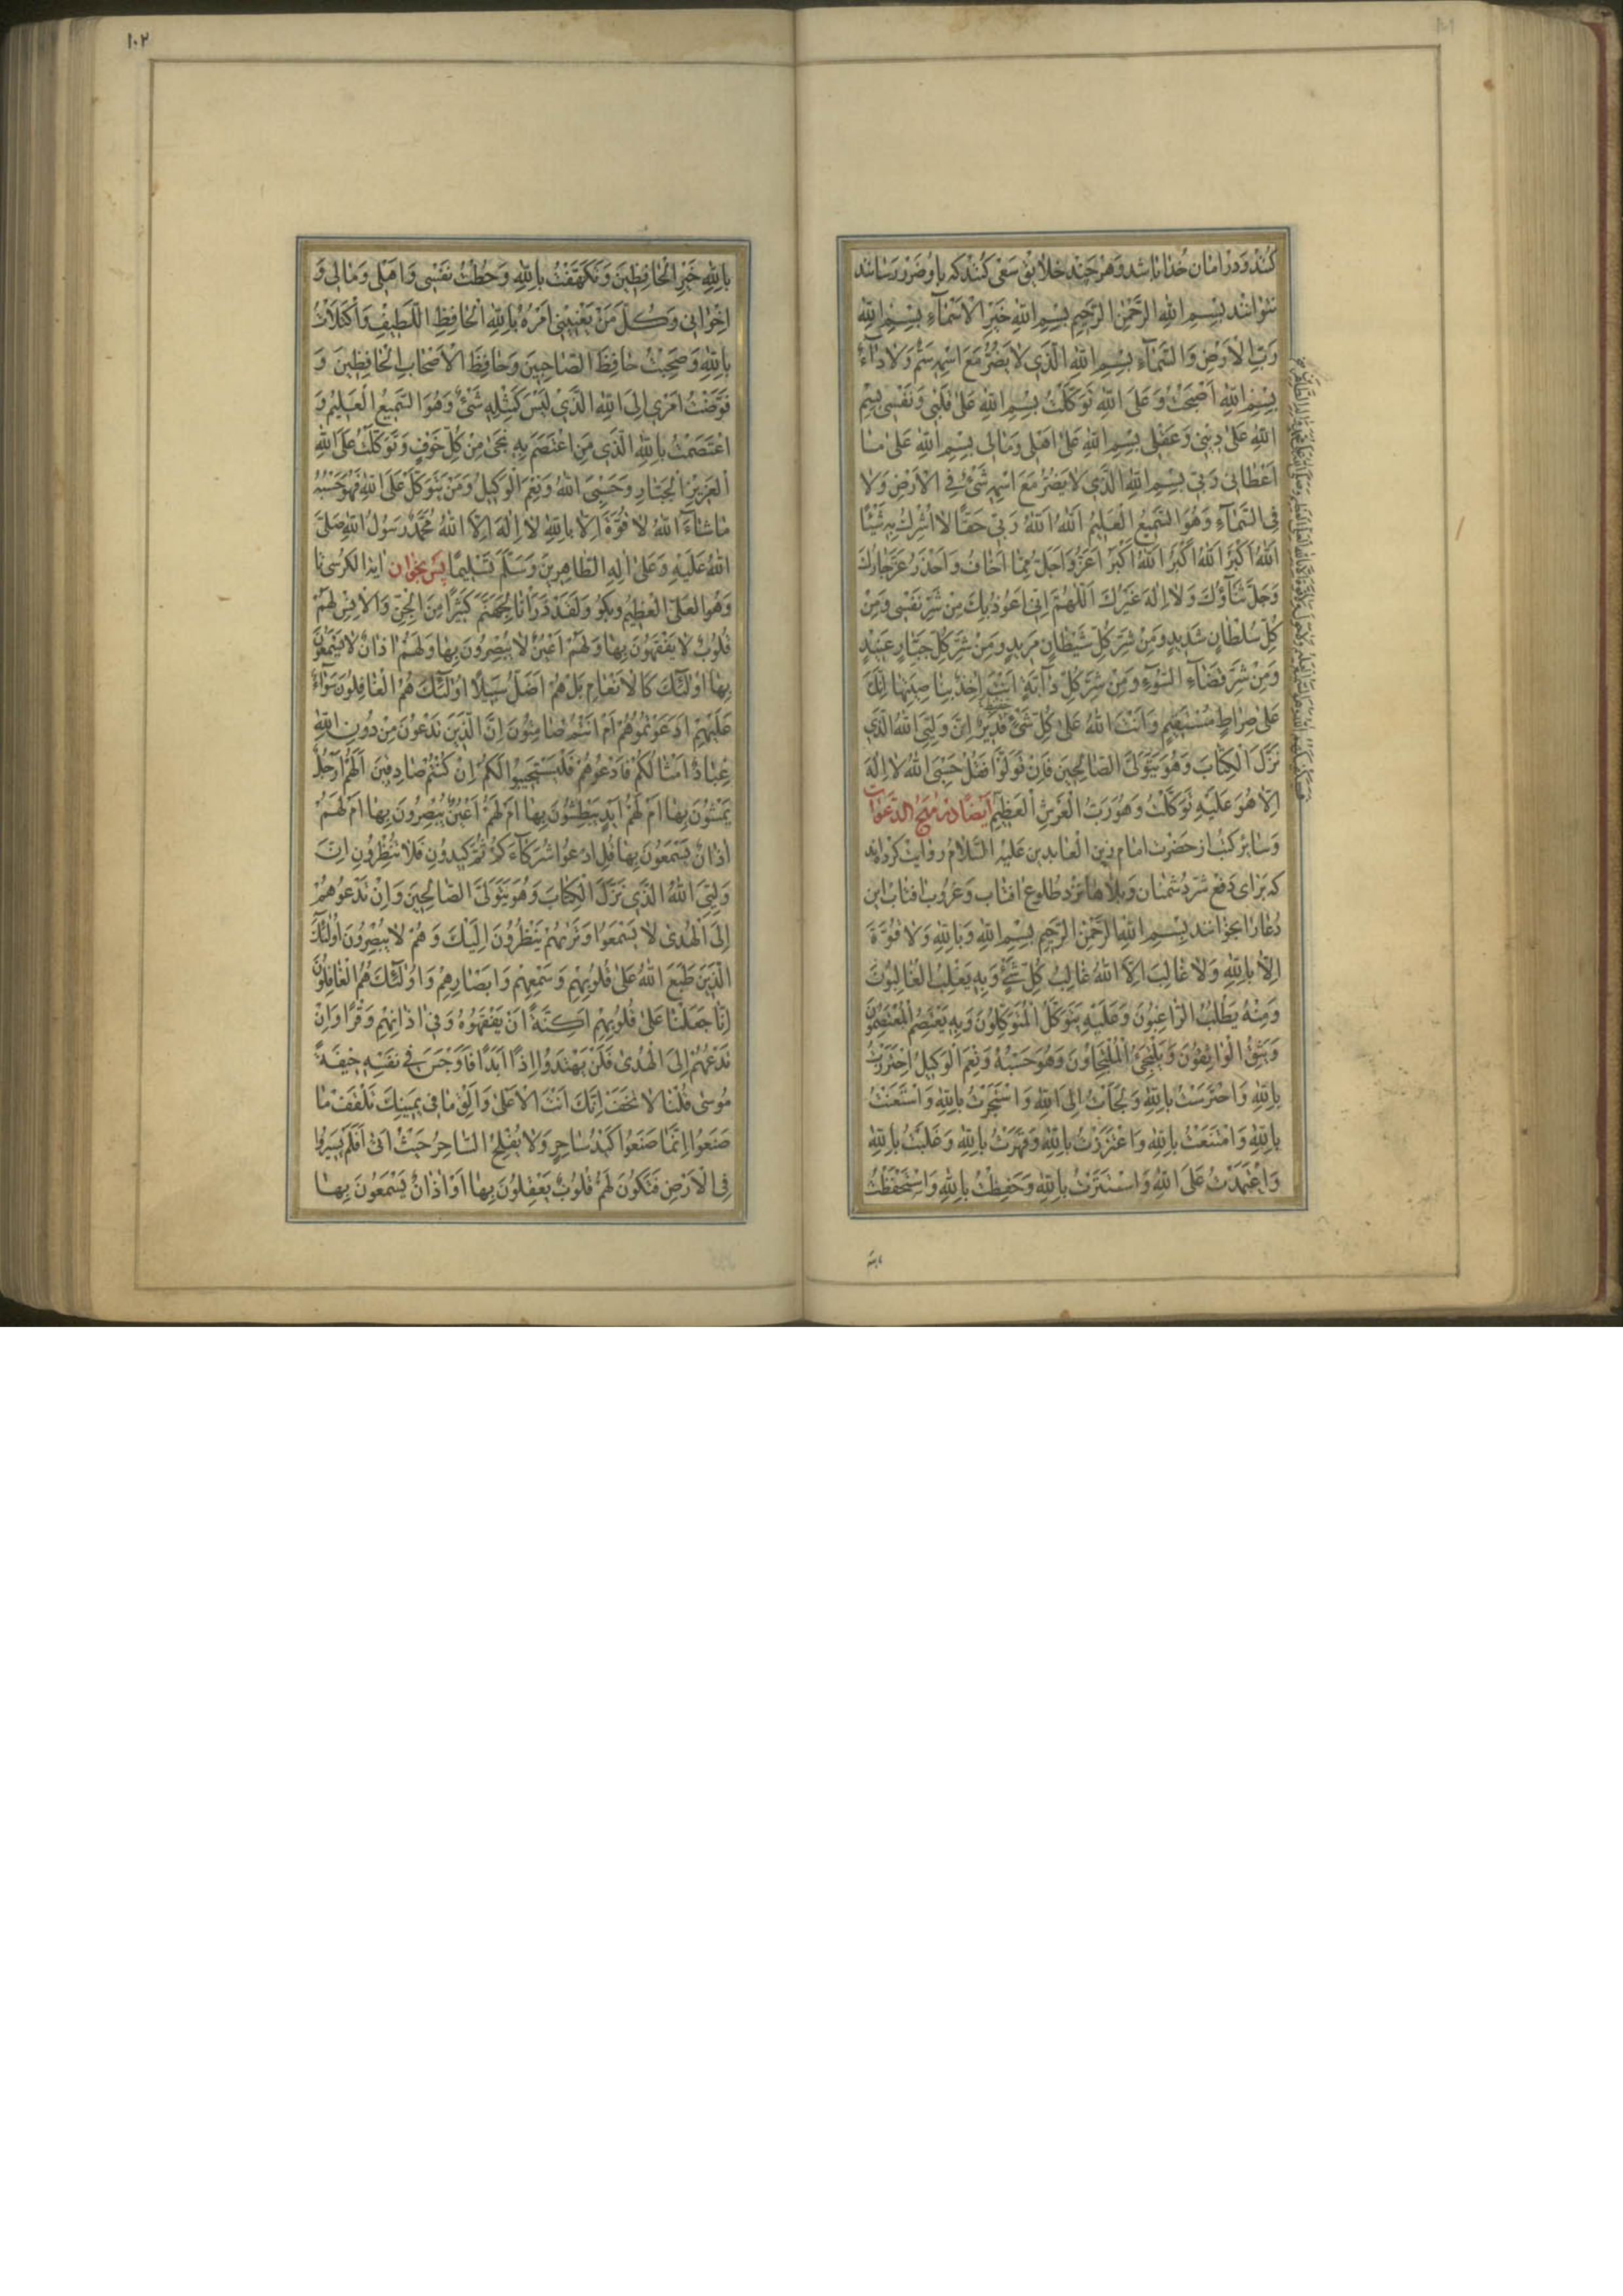 کند و در امان خدا باشد و هر چند خلایق سعی کنند که باو ضرر رسانند
نتوانند بِسْمِ اللهِ الرَّحْمٰنِ الرَّحِیمِ بِسْمِ اللهِ خَیْرِ الْاَسْمَاءِ بِسْمِ اللهِ
رَبِّ الْاَرْضِ وَالسَّمَاءِ بِسْمِ اللهِ الَّذِی لَا یَضُرُّ مَعَ اسْمِهِ سَمٌّ وَلَا دَاءٌ
بِسْمِ اللهِ اَصْبَحْتُ وَعَلَی اللهِ تَوَکَّلْتُ بِسْمِ اللهِ عَلیٰ قَلْبِی وَنَفْسِی بِسْمِ
اللهِ عَلیٰ دِینِی وَعَقْلِی بِسْمِ اللهِ عَلیٰ اَهْلِی وَمَالِی بِسْمِ اللهِ عَلیٰ مَا
اَعْطَانِی رَبِّی بِسْمِ اللهِ الَّذِی لَا یَضُرُّ مَعَ اسْمِهِ شَیْءٌ فِی الْاَرْضِ وَلَا
فِی السَّمَاءِ وَهُوَ السَّمِیعُ الْعَلِیمُ اَللهُ اَللهُ رَبِّی حَقًّا لَا اُشْرِكُ بِهِ شَیْئًا
اَللهُ اَکْبَرُ اَللهُ اَکْبَرُ اَللهُ اَکْبَرُ اَعَزُّ وَاَجَلُّ مِمَّا اَخَافُ وَاَحْذَرُ عَزَّ جَارُكَ
وَجَلَّ ثَنَاؤُكَ وَلَا اِلٰهَ غَیْرُكَ اَللّٰهُمَّ اِنِّی اَعُوذُ بِكَ مِنْ شَرِّ نَفْسِی وَمِنْ
کُلِّ سُلْطَانٍ شَدِیدٍ وَمِنْ شَرِّ کُلِّ شَیْطَانٍ مَرِیدٍ وَمِنْ شَرِّ کُلِّ جَبَّارٍ عَنِیدٍ
وَمِنْ شَرِّ قَضَاءِ السُّوءِ وَمِنْ شَرِّ کُلِّ دَابَّةٍ اَنْتَ اٰخِذٌ بِنَاصِیَتِهَا اِنَّكَ
عَلیٰ صِرَاطٍ مُسْتَقِیمٍ وَاَنْتَ اللهُ عَلیٰ کُلِّ شَیْءٍ قَدِیرٌ اِنَّ وَلِیِّیَ اللهُ الَّذِی
نَزَّلَ الْکِتَابَ وَهُوَ یَتَوَلَّی الصَّالِحِینَ فَاِنْ تَوَلَّوْا فَقُلْ حَسْبِیَ اللهُ لَا اِلٰهَ
اِلَّا هُوَ عَلَیْهِ تَوَکَّلْتُ وَهُوَ رَبُّ الْعَرْشِ الْعَظِیمِ ایضا در مهج الدعوات
و سایر کتب از حضرت امام زین العابدین علیه السلام روایت کرده‌اند
که برای دفع شر دشمنان و بلاها نزد طلوع افتاب و غروب افتاب این
دعا را بخوانند بِسْمِ اللهِ الرَّحْمٰنِ الرَّحِیمِ بِسْمِ اللهِ وَبِاللهِ وَلَا قُوَّةَ
اِلَّا بِاللهِ وَلَا غَالِبَ اِلَّا اللهُ غَالِبُ کُلِّ شَیْءٍ وَبِهِ یَغْلِبُ الْغَالِبُونَ
وَمِنْهُ یَطْلُبُ الرَّاغِبُونَ وَعَلَیْهِ یَتَوَکَّلُ الْمُتَوَکِّلُونَ وَبِهِ یَعْتَصِمُ الْمُعْتَصِمُونَ
وَیَثِقُ الْوَاثِقُونَ وَیَلْتَجِئُ الْمُلْتَجِاؤُنَ وَهُوَ حَسْبُهُ وَنِعْمَ الْوَکِیلُ اِحْتَرَزْتُ
بِاللهِ وَاحْتَرَسْتُ بِاللهِ وَلَجَأْتُ اِلَی اللهِ وَاسْتَجَرْتُ بِاللهِ وَاسْتَعَنْتُ
بِاللهِ وَامْتَنَعْتُ بِاللهِ وَاعْتَزَزْتُ بِاللهِ وَقَهَرْتُ بِاللهِ وَغَلَبْتُ بِاللهِ
وَاعْتَمَدْتُ عَلَی اللهِ وَاسْتَتَرْتُ بِاللهِ وَحَفِظْتُ بِاللهِ وَاسْتَحْفَظْتُ
۱۰۲
بِاللهِ خَیْرِ الْحَافِظِینَ وَتَکَهَّفْتُ بِاللهِ وَحُطْتُ نَفْسِی وَاَهْلِی وَمَالِی وَ
اِخْوَانِی وَکُلَّ مَنْ یَعْنِینِی اَمْرُهُ بِاللهِ الْحَافِظِ اللَّطِیفِ وَاکْتَلَاْتُ
بِاللهِ وَصَحِبْتُ حَافِظَ الصَّاحِبِینَ وَحَافِظَ الْاَصْحَابِ الْحَافِظِینَ وَ
فَوَّضْتُ اَمْرِی اِلَی اللهِ الَّذِی لَیْسَ کَمِثْلِهِ شَیْءٌ وَهُوَ السَّمِیعُ الْعَلِیمُ وَ
اعْتَصَمْتُ بِاللهِ الَّذِی مَنِ اعْتَصَمَ بِهِ نَجیٰ مِنْ کُلِّ خَوْفٍ وَتَوَکَّلْتُ عَلَی اللهِ
الْعَزِیزِ الْجَبَّارِ وَحَسْبِیَ اللهُ وَنِعْمَ الْوَکِیلُ وَمَنْ یَتَوَکَّلْ عَلَی اللهِ فَهُوَ حَسْبُهُ
مَا شَاءَ اللهُ لَا قُوَّةَ اِلَّا بِاللهِ لَا اِلٰهَ اِلَّا اللهُ مُحَمَّدٌ رَسُولُ اللهِ صَلَّی
اللهُ عَلَیْهِ وَعَلیٰ اٰلِهِ الطَّاهِرِینَ وَسَلَّمَ تَسْلِیمًا پس بخوان ایة الکرسی تا
وهو العلی العظیم و بگو وَلَقَدْ ذَرَأْنَا لِجَهَنَّمَ کَثِیرًا مِنَ الْجِنِّ وَالْاِنْسِ لَهُمْ
قُلُوبٌ لَا یَفْقَهُونَ بِهَا وَلَهُمْ اَعْیُنٌ لَا یُبْصِرُونَ بِهَا وَلَهُمْ اٰذَانٌ لَا یَسْمَعُونَ
بِهَا اُولٰئِكَ کَالْاَنْعَامِ بَلْ هُمْ اَضَلُّ سَبِیلًا اُولٰئِكَ هُمُ الْغَافِلُونَ سَوَاءٌ
عَلَیْهِمْ اَدَعَوْتُمُوهُمْ اَمْ اَنْتُمْ صَامِتُونَ اِنَّ الَّذِینَ تَدْعُونَ مِنْ دُونِ اللهِ
عِبَادٌ اَمْثَالُکُمْ فَادْعُوهُمْ فَلْیَسْتَجِیبُوا لَکُمْ اِنْ کُنْتُمْ صَادِقِینَ اَلَهُمْ اَرْجُلٌ
یَمْشُونَ بِهَا اَمْ لَهُمْ اَیْدٍ یَبْطِشُونَ بِهَا اَمْ لَهُمْ اَعْیُنٌ یُبْصِرُونَ بِهَا اَمْ لَهُمْ
اٰذَانٌ یَسْمَعُونَ بِهَا قُلِ ادْعُوا شُرَکَاءَکُمْ ثُمَّ کِیدُونِ فَلَا تُنْظِرُونِ اِنَّ
وَلِیِّیَ اللهُ الَّذِی نَزَّلَ الْکِتَابَ وَهُوَ یَتَوَلَّی الصَّالِحِینَ وَاِنْ تَدْعُوهُمْ
اِلَی الْهُدیٰ لَا یَسْمَعُوا وَتَرٰیهُمْ یَنْظُرُونَ اِلَیْكَ وَهُمْ لَا یُبْصِرُونَ اُولٰئِكَ
الَّذِینَ طَبَعَ اللهُ عَلیٰ قُلُوبِهِمْ وَسَمْعِهِمْ وَاَبْصَارِهِمْ وَاُولٰئِكَ هُمُ الْغَافِلُونَ
اِنَّا جَعَلْنَا عَلیٰ قُلُوبِهِمْ اَکِنَّةً اَنْ یَفْقَهُوهُ وَفِی اٰذَانِهِمْ وَقْرًا وَاِنْ
تَدْعُهُمْ اِلَی الْهُدیٰ فَلَنْ یَهْتَدُوا اِذًا اَبَدًا فَاَوْجَسَ فِی نَفْسِهِ خِیفَةً
مُوسیٰ قُلْنَا لَا تَخَفْ اِنَّكَ اَنْتَ الْاَعْلیٰ وَاَلْقِ مَا فِی یَمِینِكَ تَلْقَفْ مَا
صَنَعُوا اِنَّمَا صَنَعُوا کَیْدُ سَاحِرٍ وَلَا یُفْلِحُ السَّاحِرُ حَیْثُ اَتیٰ اَفَلَمْ یَسِیرُوا
فِی الْاَرْضِ فَتَکُونَ لَهُمْ قُلُوبٌ یَعْقِلُونَ بِهَا اَوْ اٰذَانٌ یَسْمَعُونَ بِهَا